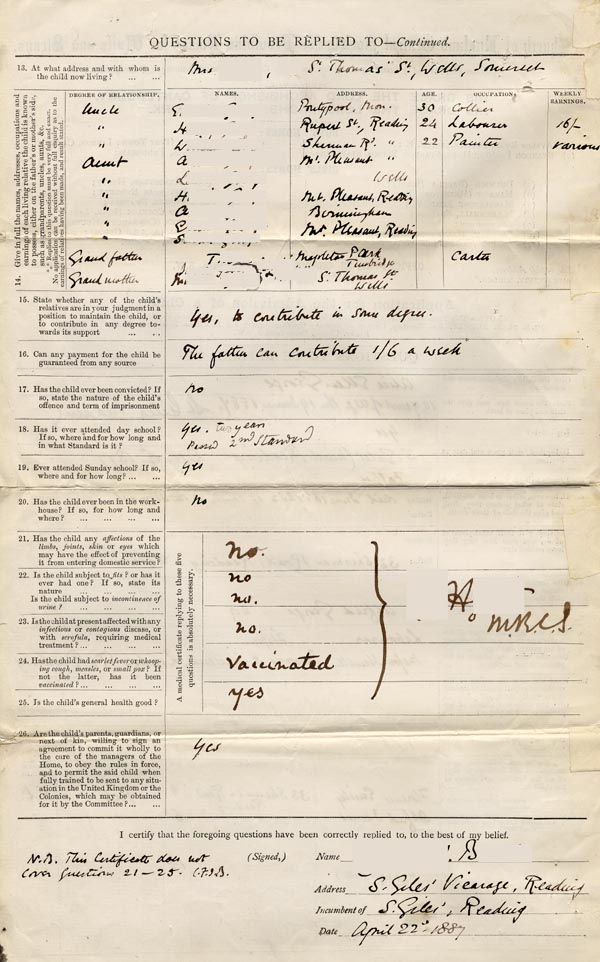 QUESTIONS TO BE REPLIED TO—Continued.
13. At what address and with whom is the child now living? ... ... Mrs , St. Thomas' St., Wells, Somerset
14. Give in full the names, addresses, occupations and earnings of each living relative the child is known to possess, either on the father's or mother's side, such as grandparents, uncles, aunts, &c.
DEGREE OF RELATIONSHIP. NAMES. ADDRESS. AGE. OCCUPATION. WEEKLY EARNINGS.
Uncle E. Pontypool, Mon. 30 Collier
" H. Rupert St., Reading 24 Labourer 16/-
" W. Sherman Rd. " 22 Painter various
Aunt A Mt. Pleasant "
" L. Wells
" H. Mt. Pleasant, Reading
" A Birmingham
" E Mt. Pleasant, Reading
" S.
Grand father T Park Carter
Grand mother M. St. Thomas St Wells
15. State whether any of the child's relatives are in your judgment in a position to maintain the child, or to contribute in any degree towards its support ... ... Yes, to contribute in some degree.
16. Can any payment for the child be guaranteed from any source The father can contribute 1/6 a week
17. Has the child ever been convicted? If so, state the nature of the child's offence and term of imprisonment no
18. Has it ever attended day school? If so, where and for how long and in what Standard is it? ... yes. two years
Passed 2nd Standard
19. Ever attended Sunday school? If so, where and for how long? ... ... yes
20. Has the child ever been in the workhouse? If so, for how long and where? ... ... ... ... no
A medical certificate replying to these five questions is absolutely necessary.
21. Has the child any affections of the limbs, joints, skin or eyes which may have the effect of preventing it from entering domestic service? no.
22. Is the child subject to fits? or has it ever had one? If so, state its nature ... ... ... ... no
Is the child subject to incontinence of urine? ... ... ... ... no.
23. Is the child at present affected with any infectious or contagious disease, or with scrofula, requiring medical treatment? ... ... ... no.
24. Has the child had scarlet fever or whooping cough, measles, or small pox? If not the latter, has it been vaccinated? ... ... ... ... vaccinated
25. Is the child's general health good? yes
H. M.R.C.S.
26. Are the child's parents, guardians, or next of kin, willing to sign an agreement to commit it wholly to the care of the managers of the Home, to obey the rules in force, and to permit the said child when fully trained to be sent to any situation in the United Kingdom or the Colonies, which may be obtained for it by the Committee? ... ... yes
I certify that the foregoing questions have been correctly replied to, to the best of my belief.
N.B. This Certificate does not
cover Questions 21-25.
(Signed,) Name B
Address S. Giles' Vicarage, Reading
Incumbent of S. Giles', Reading
Date April 22d 1887